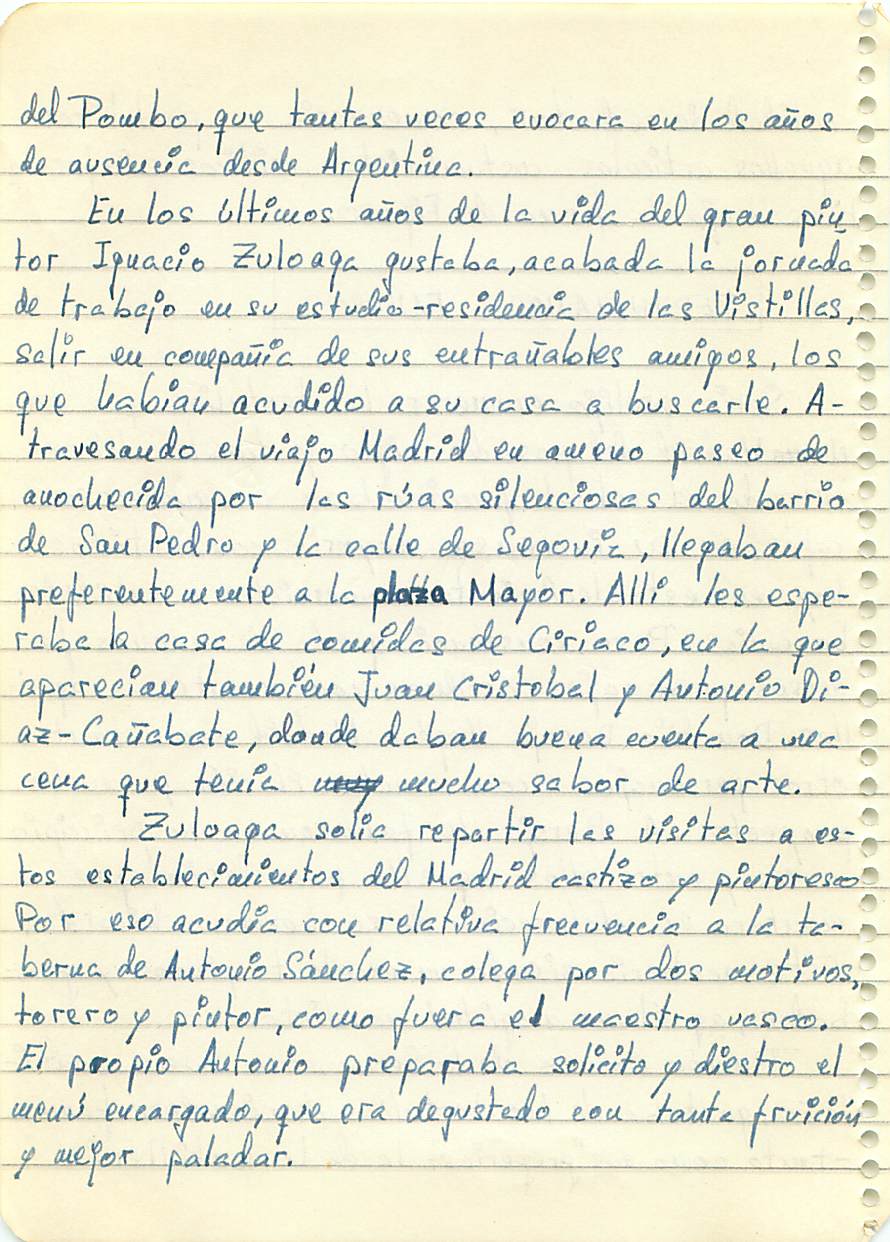 del Pombo, que tantas veces evocara en los años
de ausencia desde Argentina.
En los últimos años de la vida del gran pin
tor Ignacio Zuloaga gustaba, acabada la jornada
de trabajo en su estudio-residencia de las Vistillas,
salir en compañía de sus entrañables amigos, los
que habían acudido a su casa a buscarle. A-
travesando el viajo Madrid en ameno paseo de
anochecida por las rúas silenciosas del barrio
de San Pedro y la calle de Segovia, llegaban
preferentemente a la plaza Mayor. Allí les espe-
raba la casa de comidas de Ciriaco, en la que
aparecían también Juan Cristobal y Antonio Di-
az-Cañabate, donde daban buena cuenta a una
cena que tenía muy mucho sabor de arte.
Zuloaga solía repartir las visitas a es-
tos establecimientos del Madrid castizo y pintoresco
Por eso acudía con relativa frecuencia a la ta-
berna de Antonio Sánchez, colega por dos motivos,
torero y pintor, como fuera el maestro vasco.
El propio Antonio preparaba solícito y diestro el
menú encargado, que era degustado con tanta fruición
y mejor paladar.